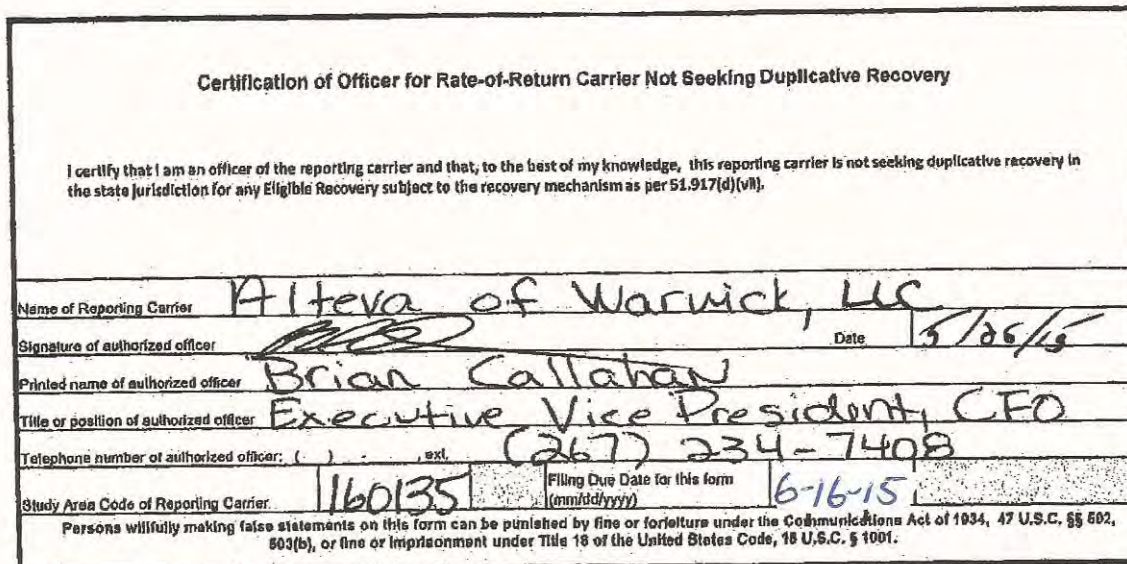 Certification of Officer for Rate-of-Return Carrier Not Seeking Duplicative Recovery
I certify that I am an officer of the reporting carrier and that, to the best of my knowledge, this reporting carrier is not seeking duplicative recovery in
the state jurisdiction for any Eligible Recovery subject to the recovery mechanism as per 51.917(d)(vii).
Name of Reporting Carrier Alteva of Warwick, LLC
Signature of authorized officer Date 5/26/15
Printed name of authorized officer Brian Callahan
Title or position of authorized officer Executive Vice President, CFO
Telephone number of authorized officer: ( ) - , ext. (267) 234-7408
Study Area Code of Reporting Carrier 160135 Filing Due Date for this form
(mm/dd/yyyy) 6-16-15
Persons willfully making false statements on this form can be punished by fine or forfeiture under the Communications Act of 1934, 47 U.S.C. §§ 502,
503(b), or fine or imprisonment under Title 18 of the United States Code, 18 U.S.C. § 1001.